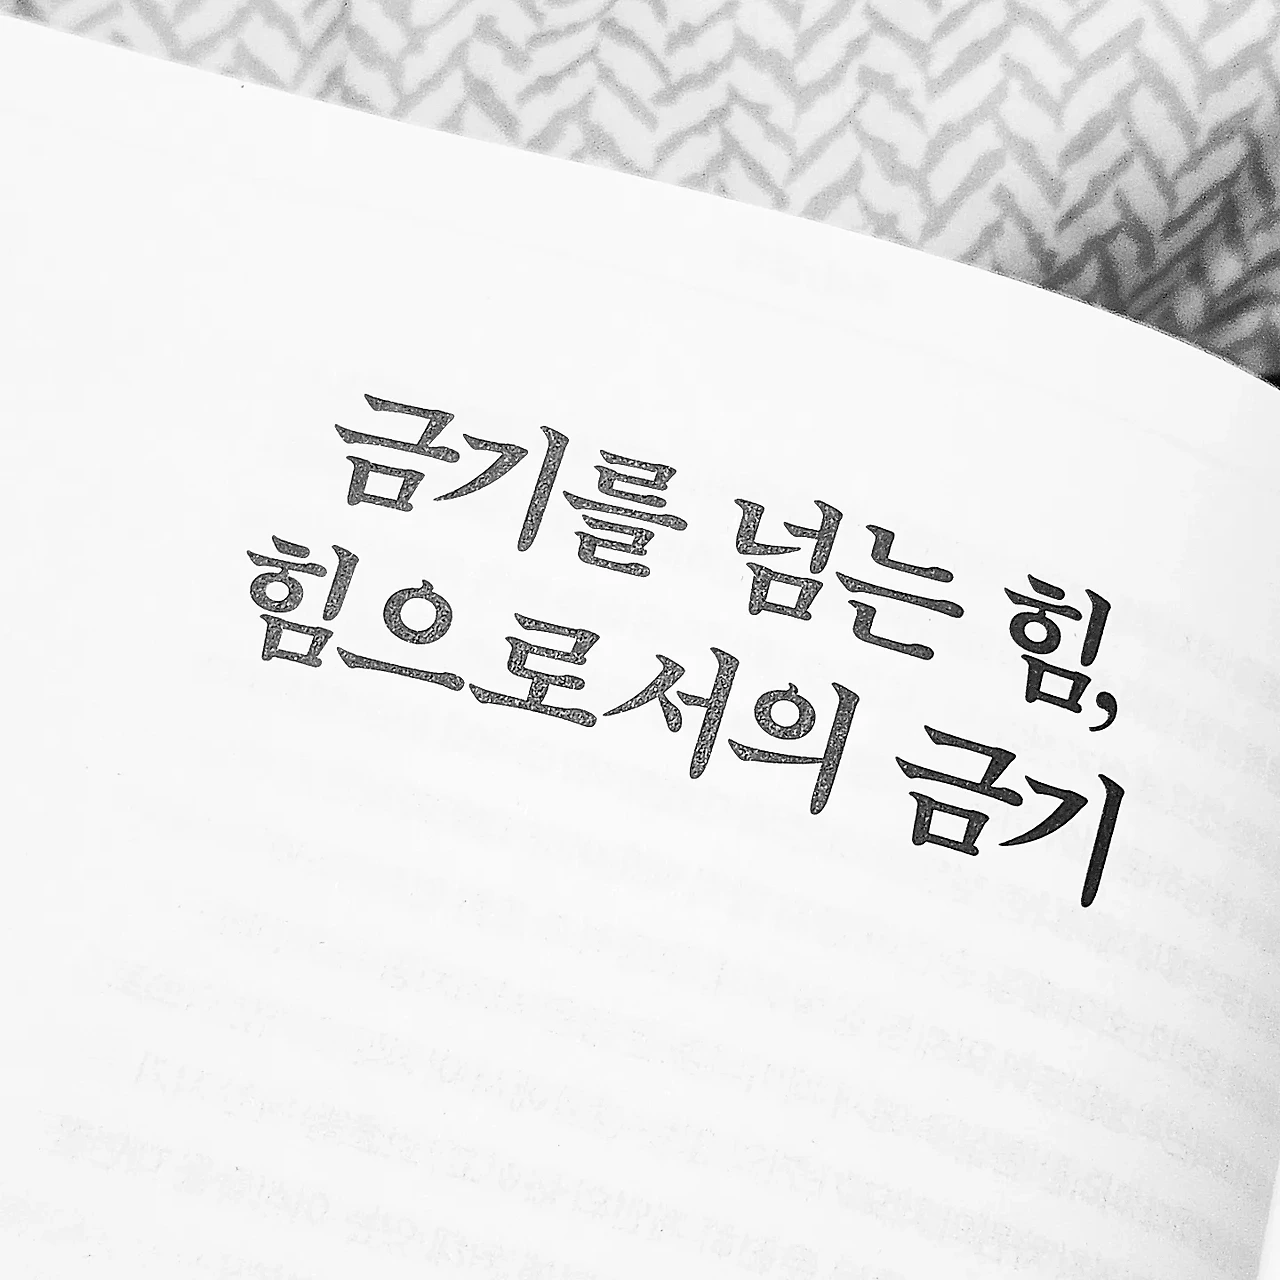 금기를 넘는 힘,
힘으로서의 금기